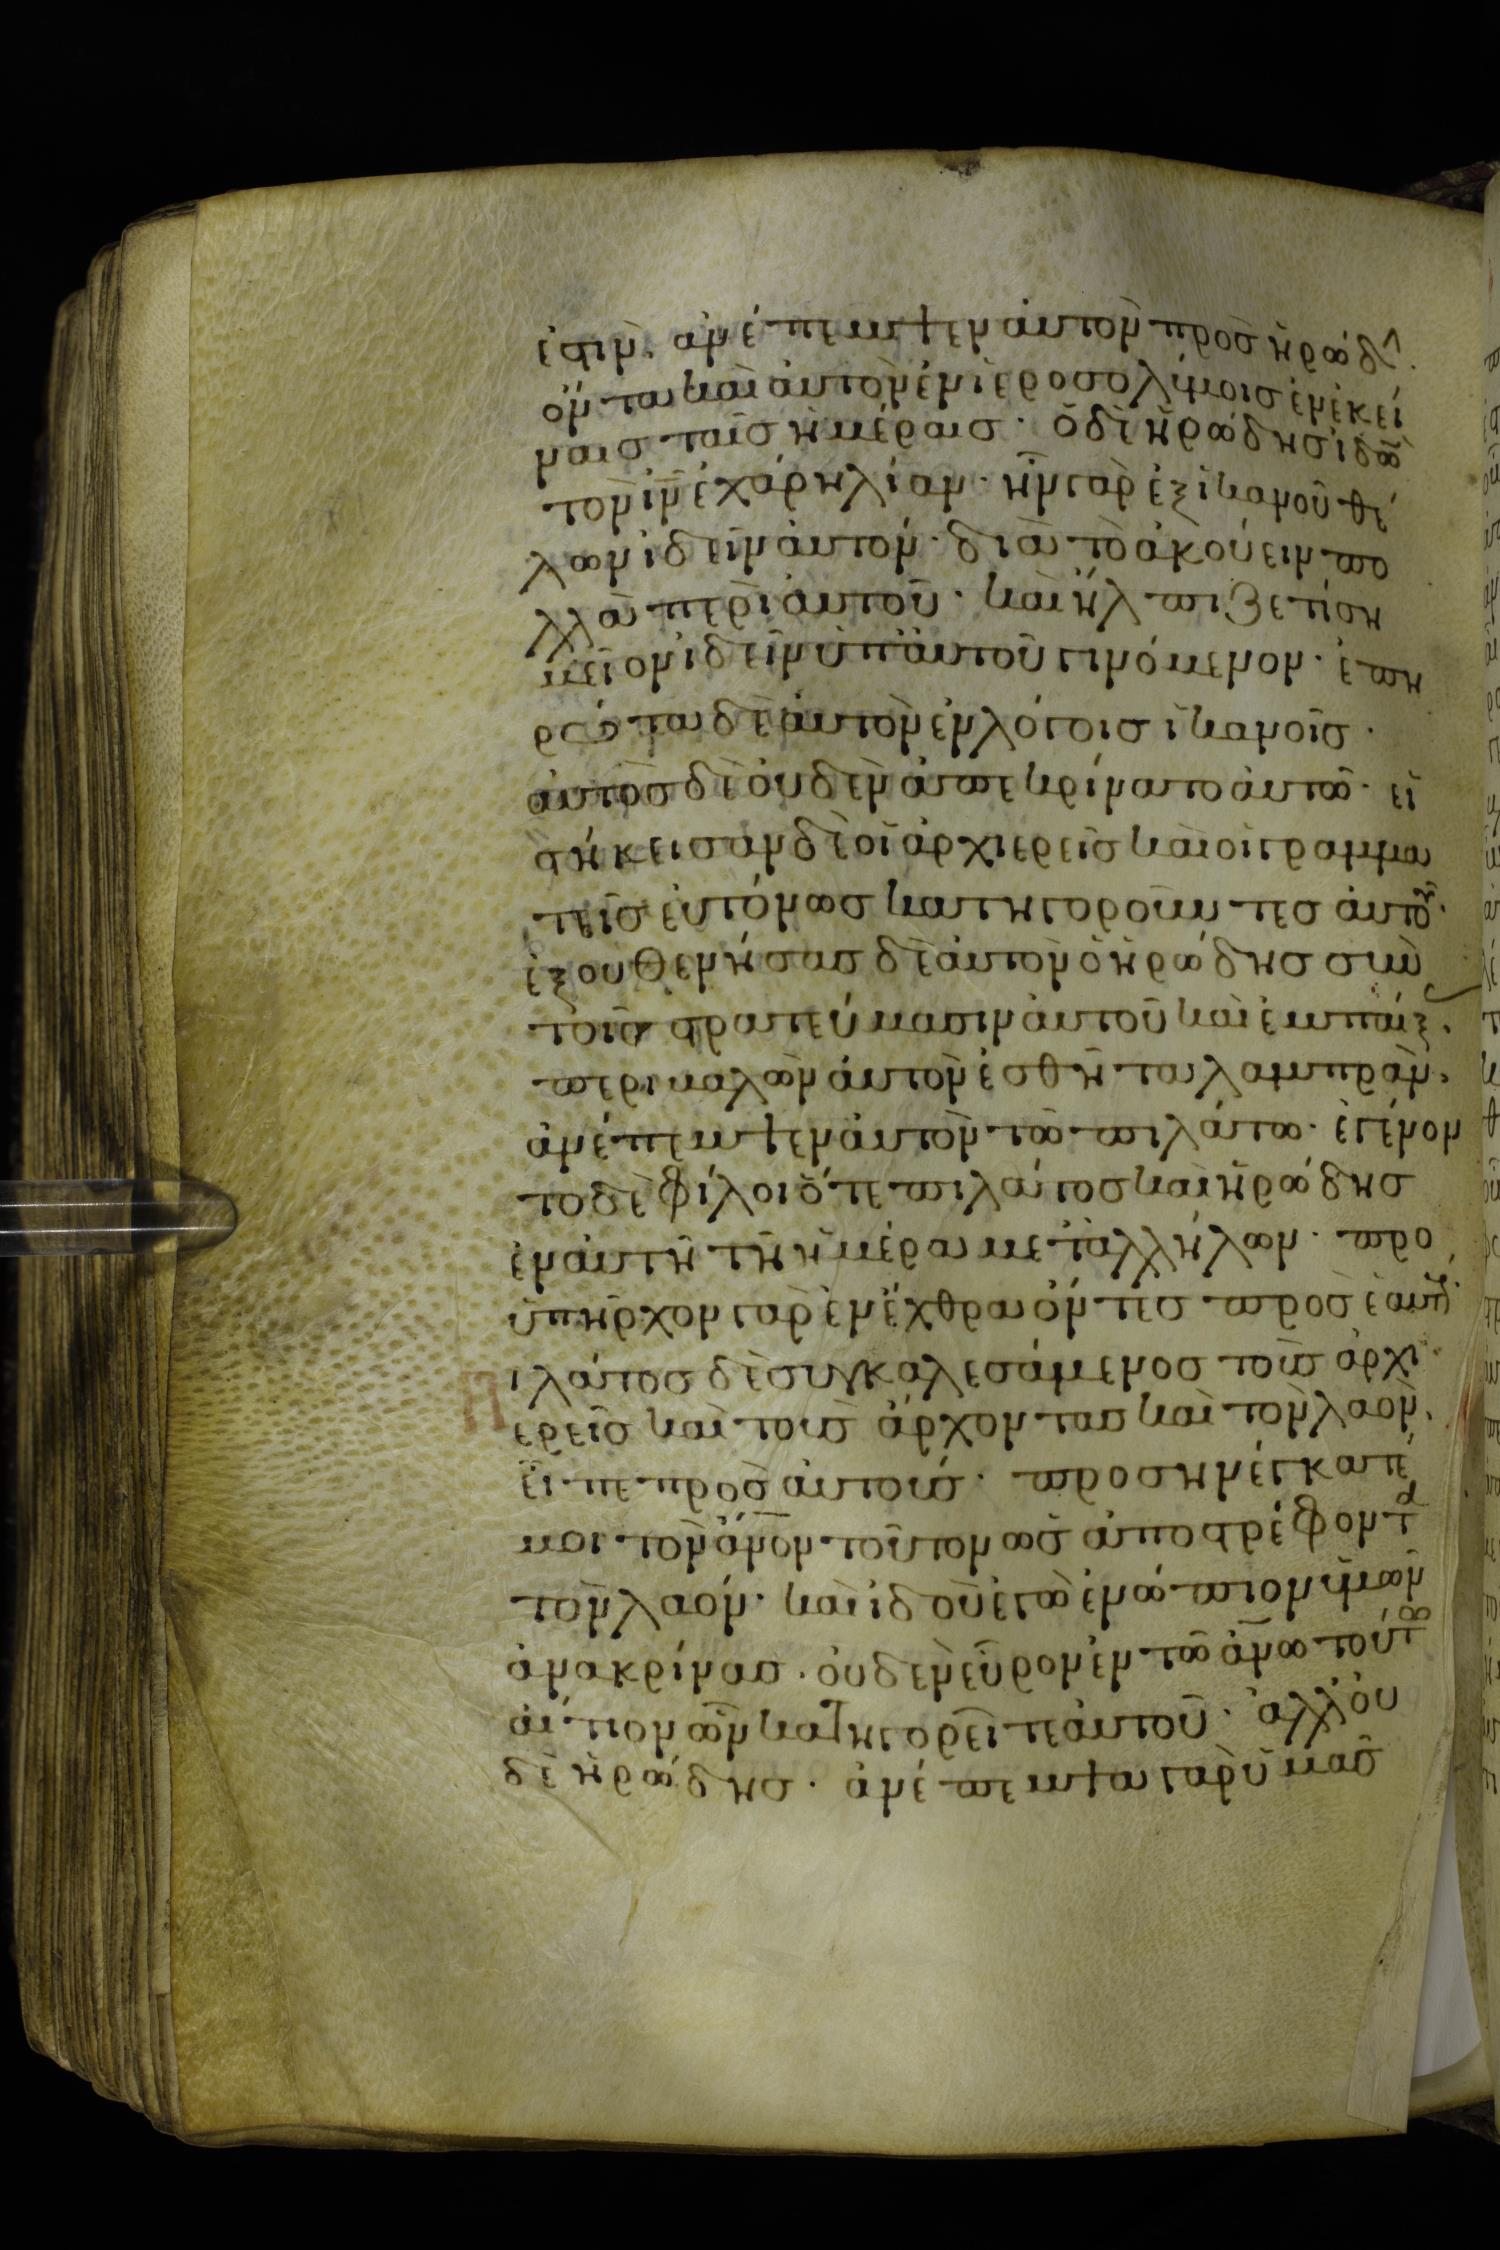 ἐστίν· ἀνέπεμψεν αὐτὸν πρὸς ἡρώδην
ὄντα καὶ αὐτὸν ἐν ἱεροσολύμοις ἐν ἐκεί
ναις ταῖς ἡμέραις. ὁ δὲ ἡρώδης ἰδὼν
τὸν ι̅ν̅ ἐχάρη λίαν. ἦν γὰρ ἐξ ἱκανοῦ θέ
λων ἰδεῖν αὐτόν. διὰ τὸ ἀκούειν πο
λλὰ περὶ αὐτοῦ. καὶ ἤλπιζέ τι ση
μεῖον ἰδεῖν ὑπ' αὐτοῦ γινόμενον. ἐπη
ρώτα δὲ αὐτὸν ἐν λόγοις ἱκανοῖς.
αὐτὸς δὲ οὐδὲν ἀπεκρίνατο αὐτῷ. εἱ
στήκεισαν δὲ οἱ ἀρχιερεῖς καὶ οἱ γραμμα
τεῖς εὐτόνως κατηγοροῦντες αὐτοῦ.
ἐξουθενήσας δὲ αὐτὸν ὁ ἡρώδης σὺν
τοῖς στρατεύμασιν αὐτοῦ καὶ ἐμπαίξας.
περιβαλὼν αὐτὸν ἐσθῆτα λαμπράν.
ἀνέπεμψεν αὐτὸν τῷ πιλάτῳ. ἐγένον
το δὲ φίλοι ὅ τε πιλάτος καὶ ἡρώδης
ἐν αὐτῇ τῇ ἡμέρα μετ' ἀλλήλων. προ
ϋπῆρχον γὰρ ἐν ἔχθρα ὄντες πρὸς ἑαυτούς.
Πιλάτος δὲ συγκαλεσάμενος τοὺς ἀρχι
ερεῖς καὶ τοὺς ἄρχοντας καὶ τὸν λαὸν.
εἶπε πρὸς αὐτούς. προσηνέγκατέ
μοι τὸν α̅ν̅ο̅ν̅ τοῦτον ὡς ἀποστρέφοντα
τὸν λαόν. καὶ ἰδοὺ ἐγὼ ἐνώπιον ὑμῶν
ἀνακρίνας. οὐδὲν εὗρον ἐν τῷ α̅ν̅ω̅ τούτω
αἴτιον ὧν κατηγορεῖτε αὐτοῦ. ἀλλ' οὐ
δὲ ἡρώδης. ἀνέπεμψα γὰρ ὑμᾶς